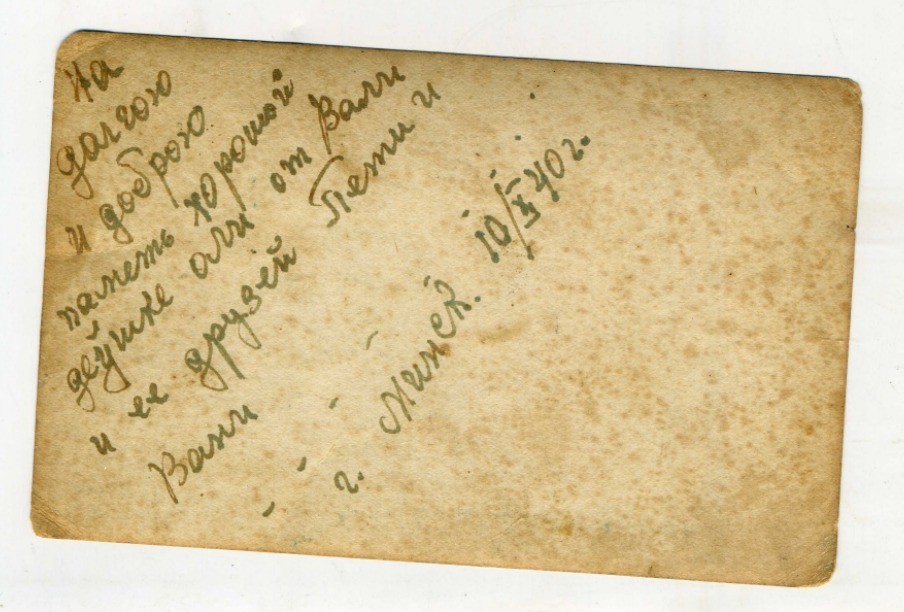 На
долгою
и доброю
паметь хорошой
деушке оли от Вали
и ее друзей Пети и
Вани
г. Минск. 10/XI 40 г.